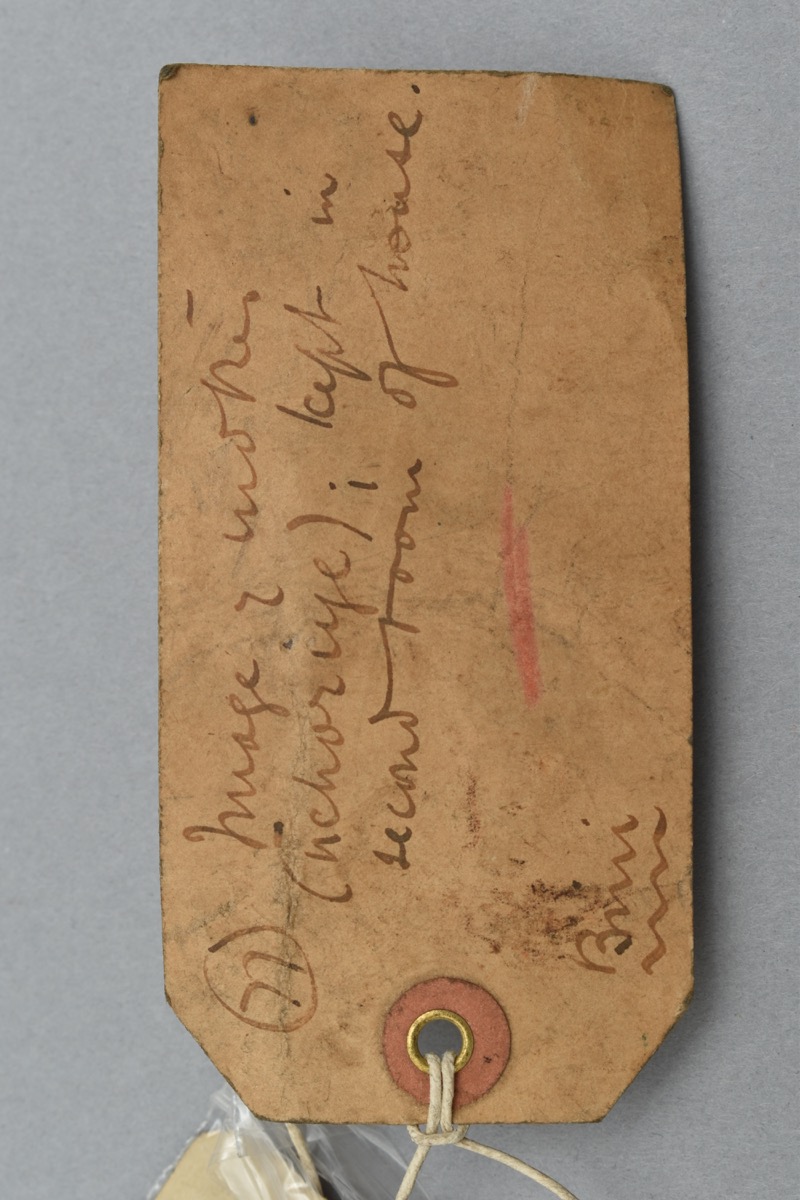 (77) Image r
(uchoricye) ; kept in
second room of house.
Bini